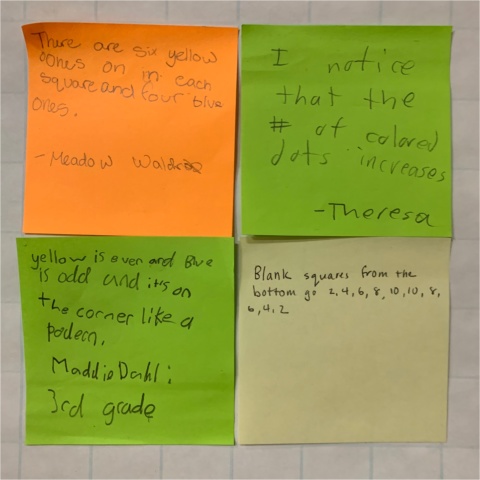 There are six yellow
ones on in each
square and four blue
ones.
- Meadow
I notice
that the
# of colored
dots increases
- Theresa
yellow is even and Blue
is odd and its on
the corner like a
padern.
Maddie Dahl:
3rd grade
Blank squares from the
bottom go 2, 4, 6, 8, 10, 10, 8,
6, 4, 2